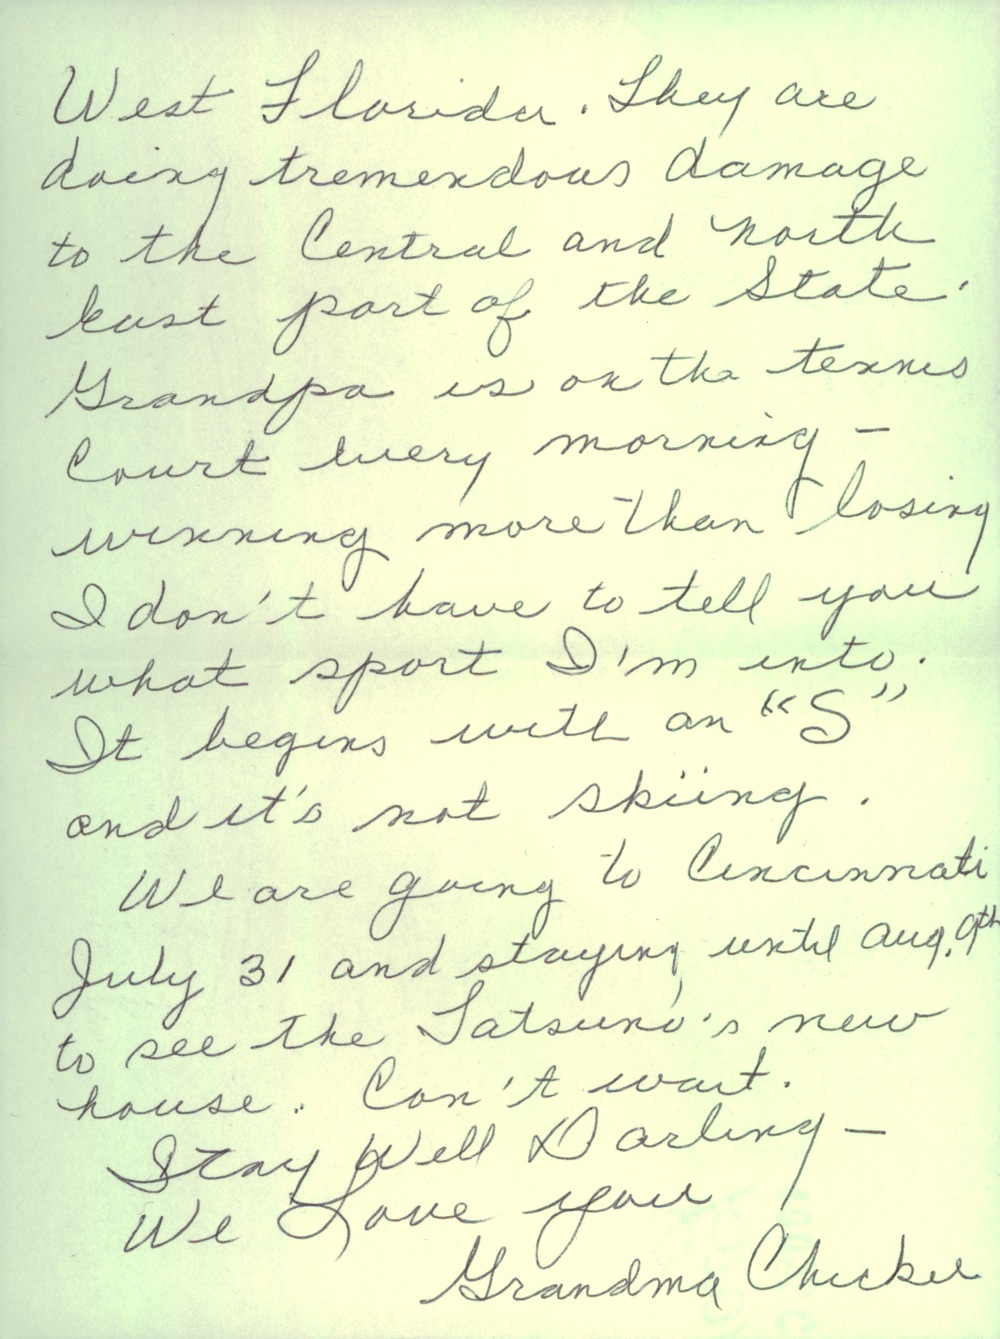 West Florida. They are
doing tremendous damage
to the Central and North
East part of the State.
Grandpa is on the tennis
Court every morning –
winning more than losing
I don't have to tell you
what sport I'm into.
It begins with an "S"
and it's not skiing.
We are going to Cincinnati
July 31 and staying until Aug. 9th
to see the Tatsuno's new
house. Can't wait.
Stay Well Darling –
We Love you
Grandma Chickee